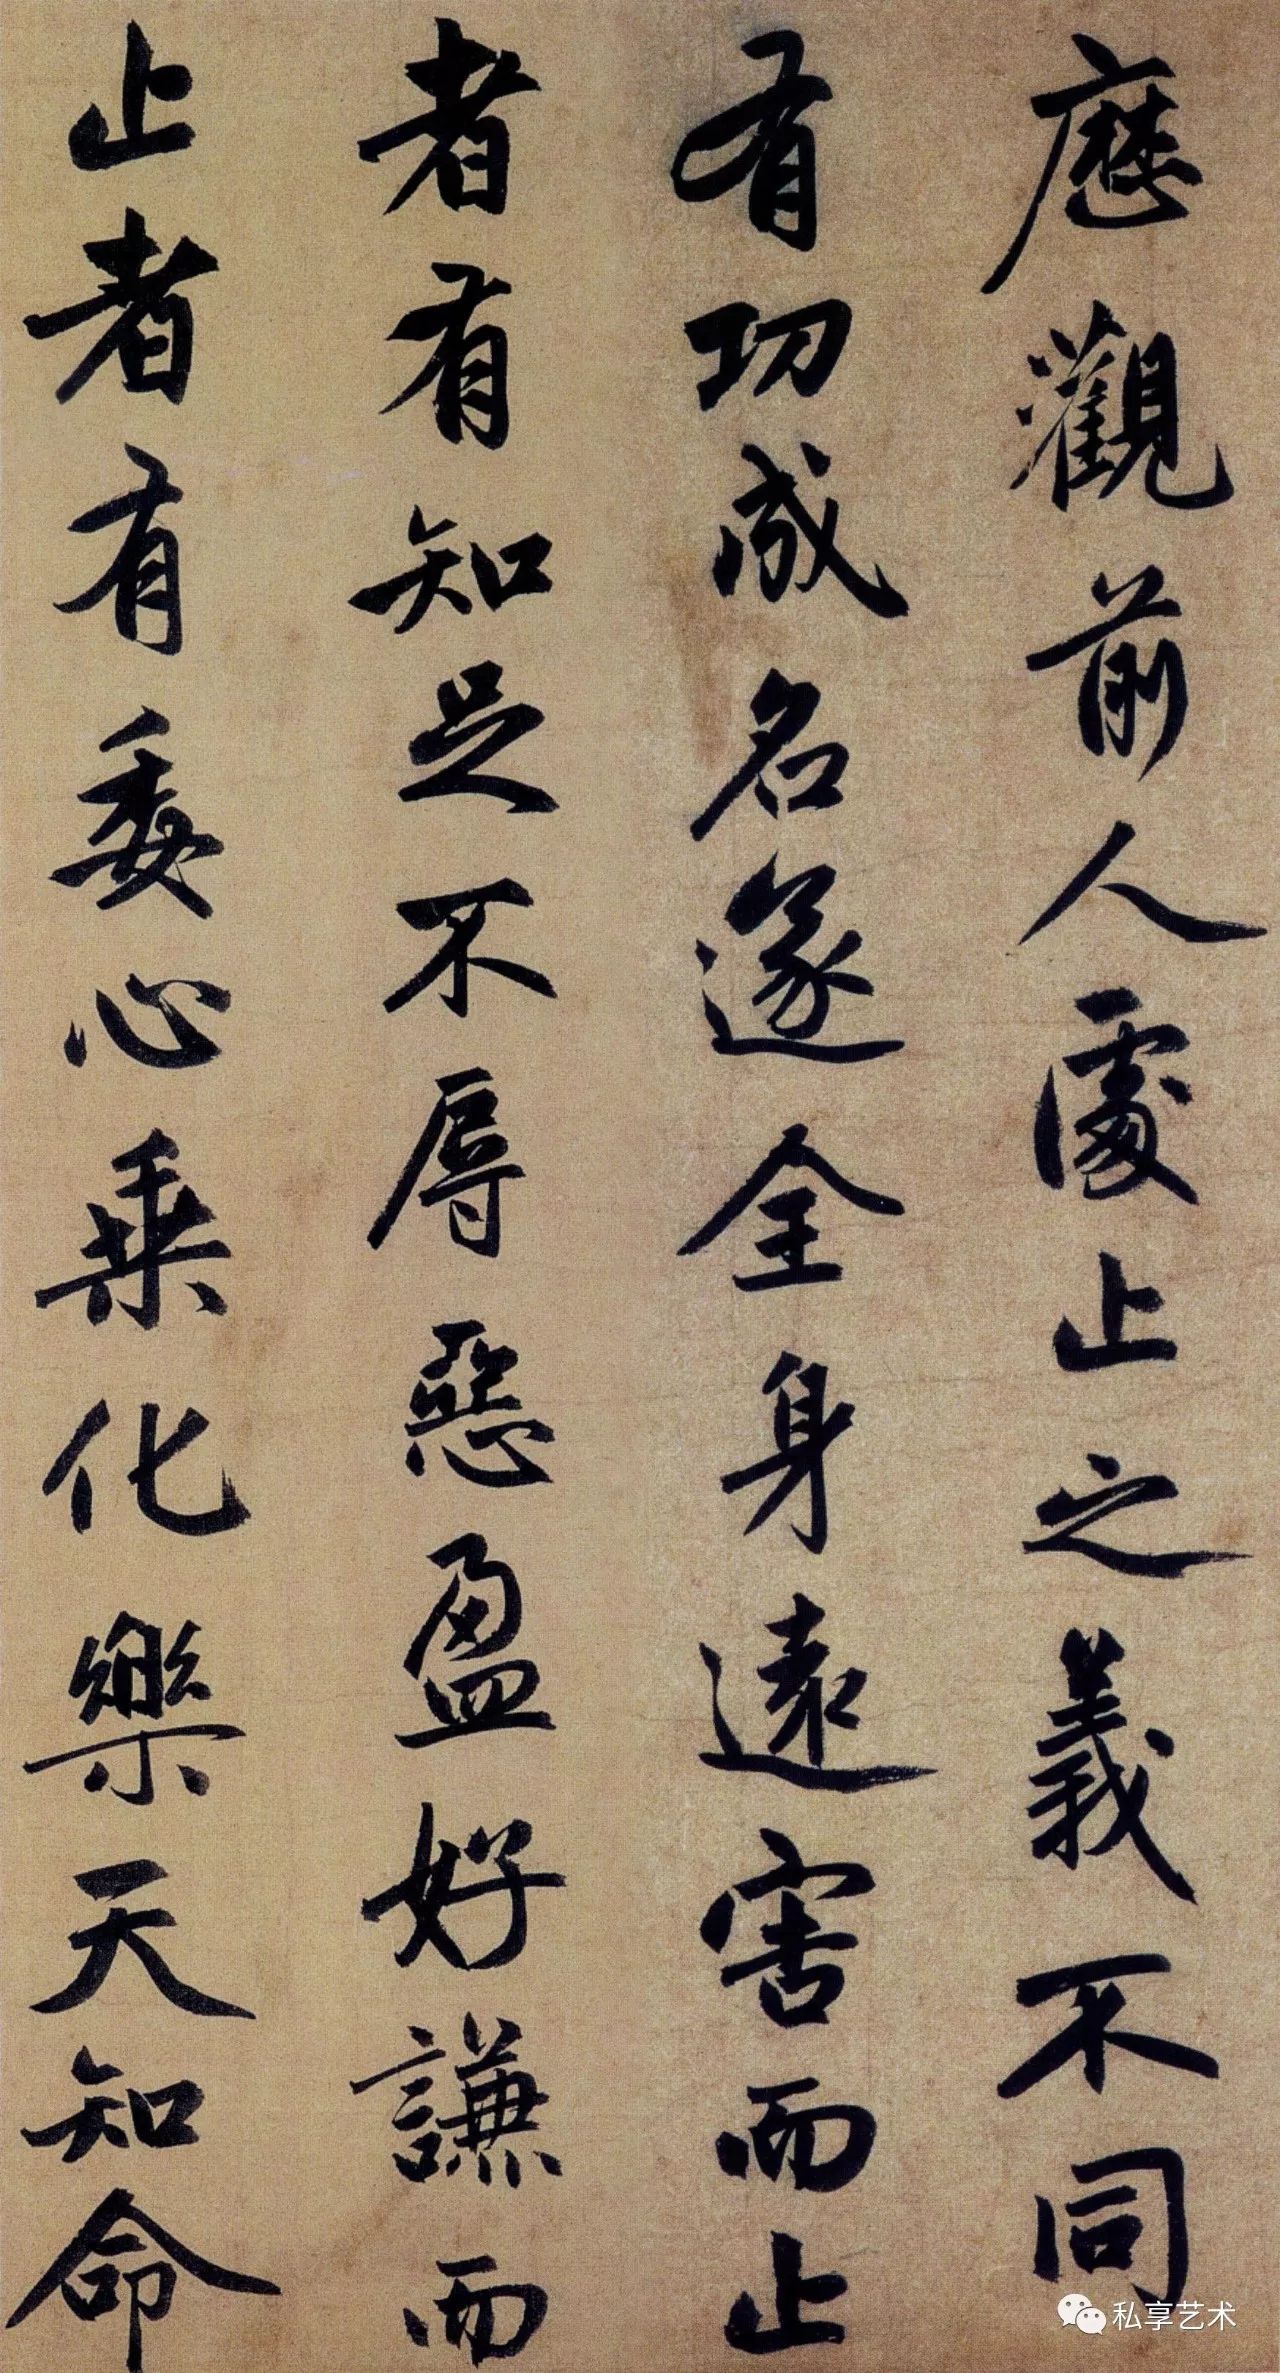 歷觀前人處止之義不同
有功成名遂全身遠害而止
者有知足不辱惡盈好謙而
止者有委心乗化樂天知命
私享艺术